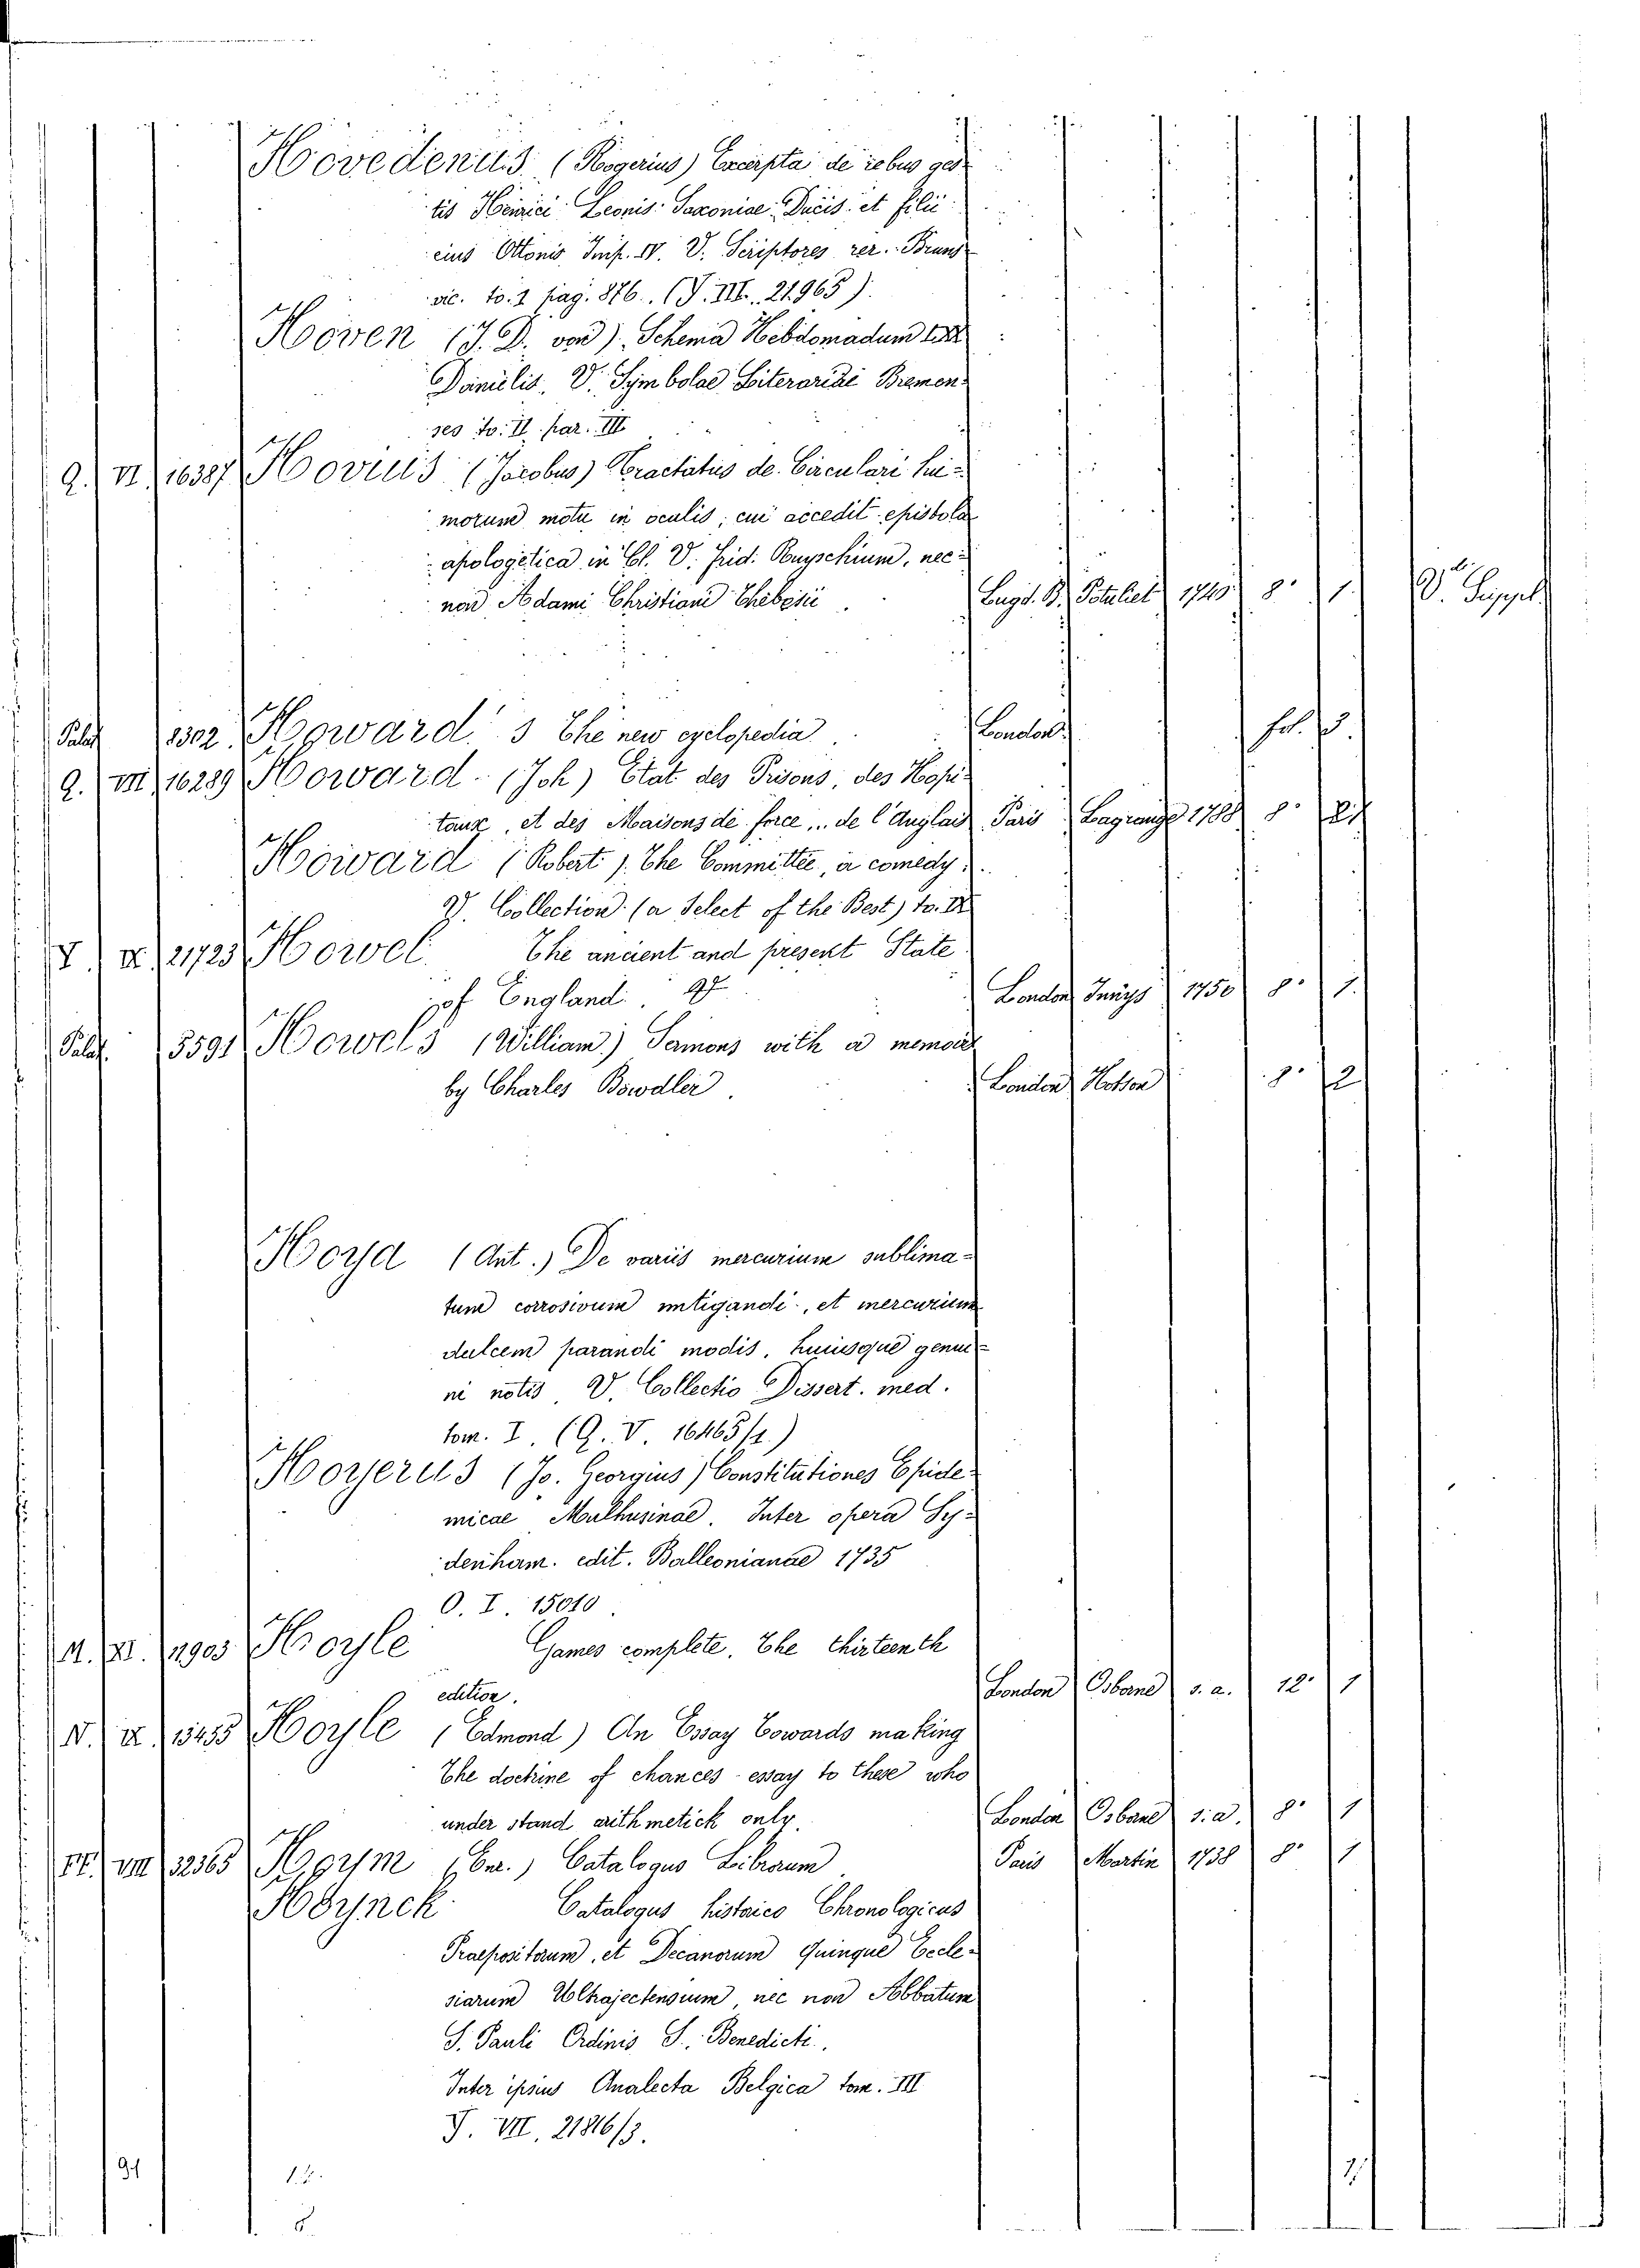 Hovedenus (Rogerius) Excerpta de rebus ges-
tis Henrici Leonis Saxoniae Ducis et filii
eius Ottonis Imp. IV. V. Scriptores rer. Bruns
vic. to. 1 pag. 876. (J. III. 21965).
Hoven (J. D. van) Schema Hebdomadum
Danielis. V. Symbolae Literariae Bremen
ses to. II par. III
Q. VI 16387 Hovius (Jacobus) Tractatus de Circulari hu-
morum motu in oculis; cui accedit epistola
apologetica in Cl. V. Frid. Ruyschium, nec-
non Adami Christiani Thebesii. Lugd. B. Potuliet 1740 8° 1. V. Suppl.
Palat 8302 Howard's The new cyclopedia. London fol. 3.
Q. VII 16289 Howard (Joh) Etat des Prisons, des Hopi-
taux, et des Maisons de force... de l'Anglais Paris Lagrange 1788 8° 2.
Howard (Robert). The Committee, a comedy.
V. Collection (a Select of the Best) to. II
V. X. 21723 Howel The ancient and present State
of England. London Innys 1750 8° 1.
Palat. 3591 Howels (William) Sermons with a memoir
by Charles Bowdler. London 8° 2
Hoyd (Ant.) De variis mercurium sublima-
tum corrosivum mitigandi, et mercurium
dulcem parandi modis, huiusque genui-
ni notis V. Collectio Dissert. med.
tom. I. (Q. V. 16465/1.)
Hoyerus (Jo. Georgius) Constitutiones Epide-
micae Mulhusinae. Inter opera Sy-
denham. edit. Balleonianae 1735
O. I. 15010.
M. XI. 11903 Hoyle Games complete. The thirteenth
edition. London Osborne s. a. 12° 1
N. IX 13455 Hoyle (Edmond) An Essay towards making
The doctrine of chances - essay to these who
under stand arithmetick only. London Osborne s. a. 8° 1
FF. VIII 32365 Hoym Catalogus Librorum Paris Martin 1738 8° 1
Hoynck Catalogus historico Chronologicus
Praepositorum, et Decanorum Quinque Eccle-
siarum Ultrajectensium, nec non Abbatum
S. Pauli Ordinis S. Benedicti.
Inter ipsius Analecta Belgica tom. III
J. VII. 21816/3.
91